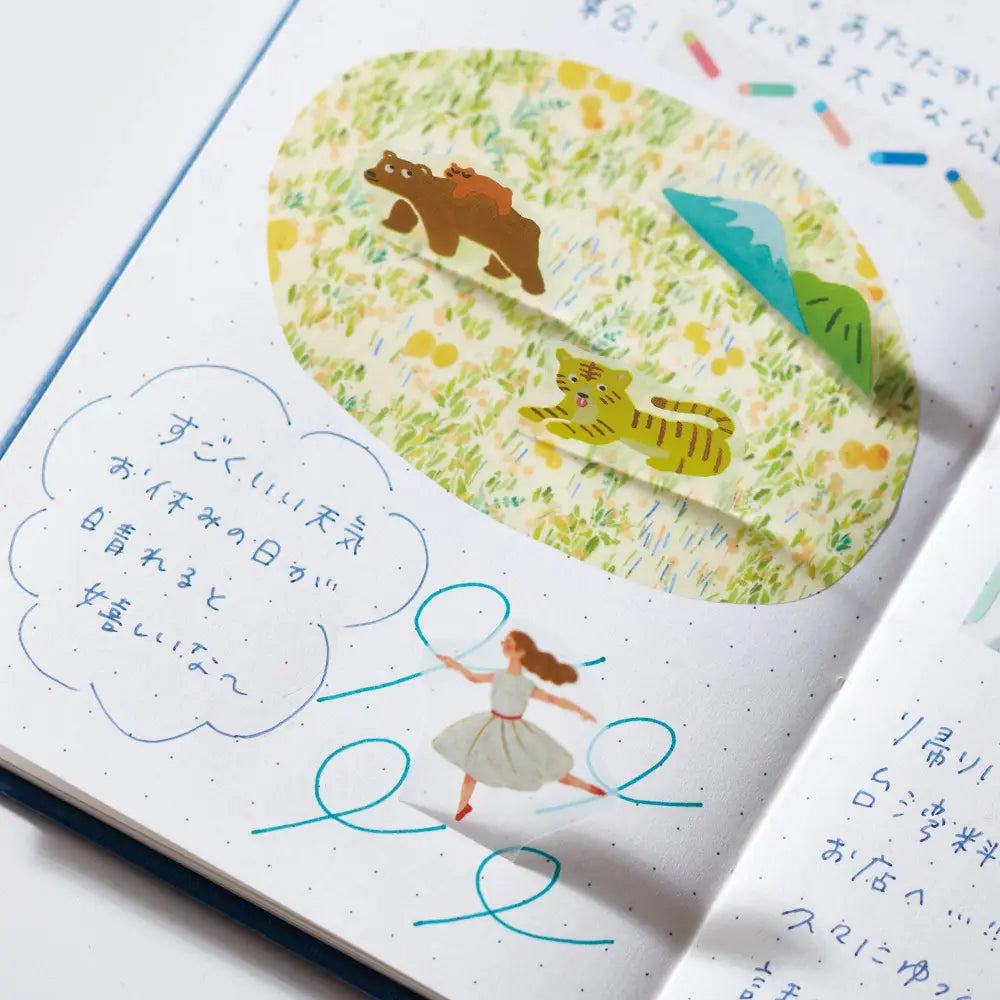 あたたかく
できる大きな公
集合!
すごくいい天気
お休みの日が
晴れると
嬉しいな〜
帰り
台湾料
お店へ…!!
久々にゆっ
話